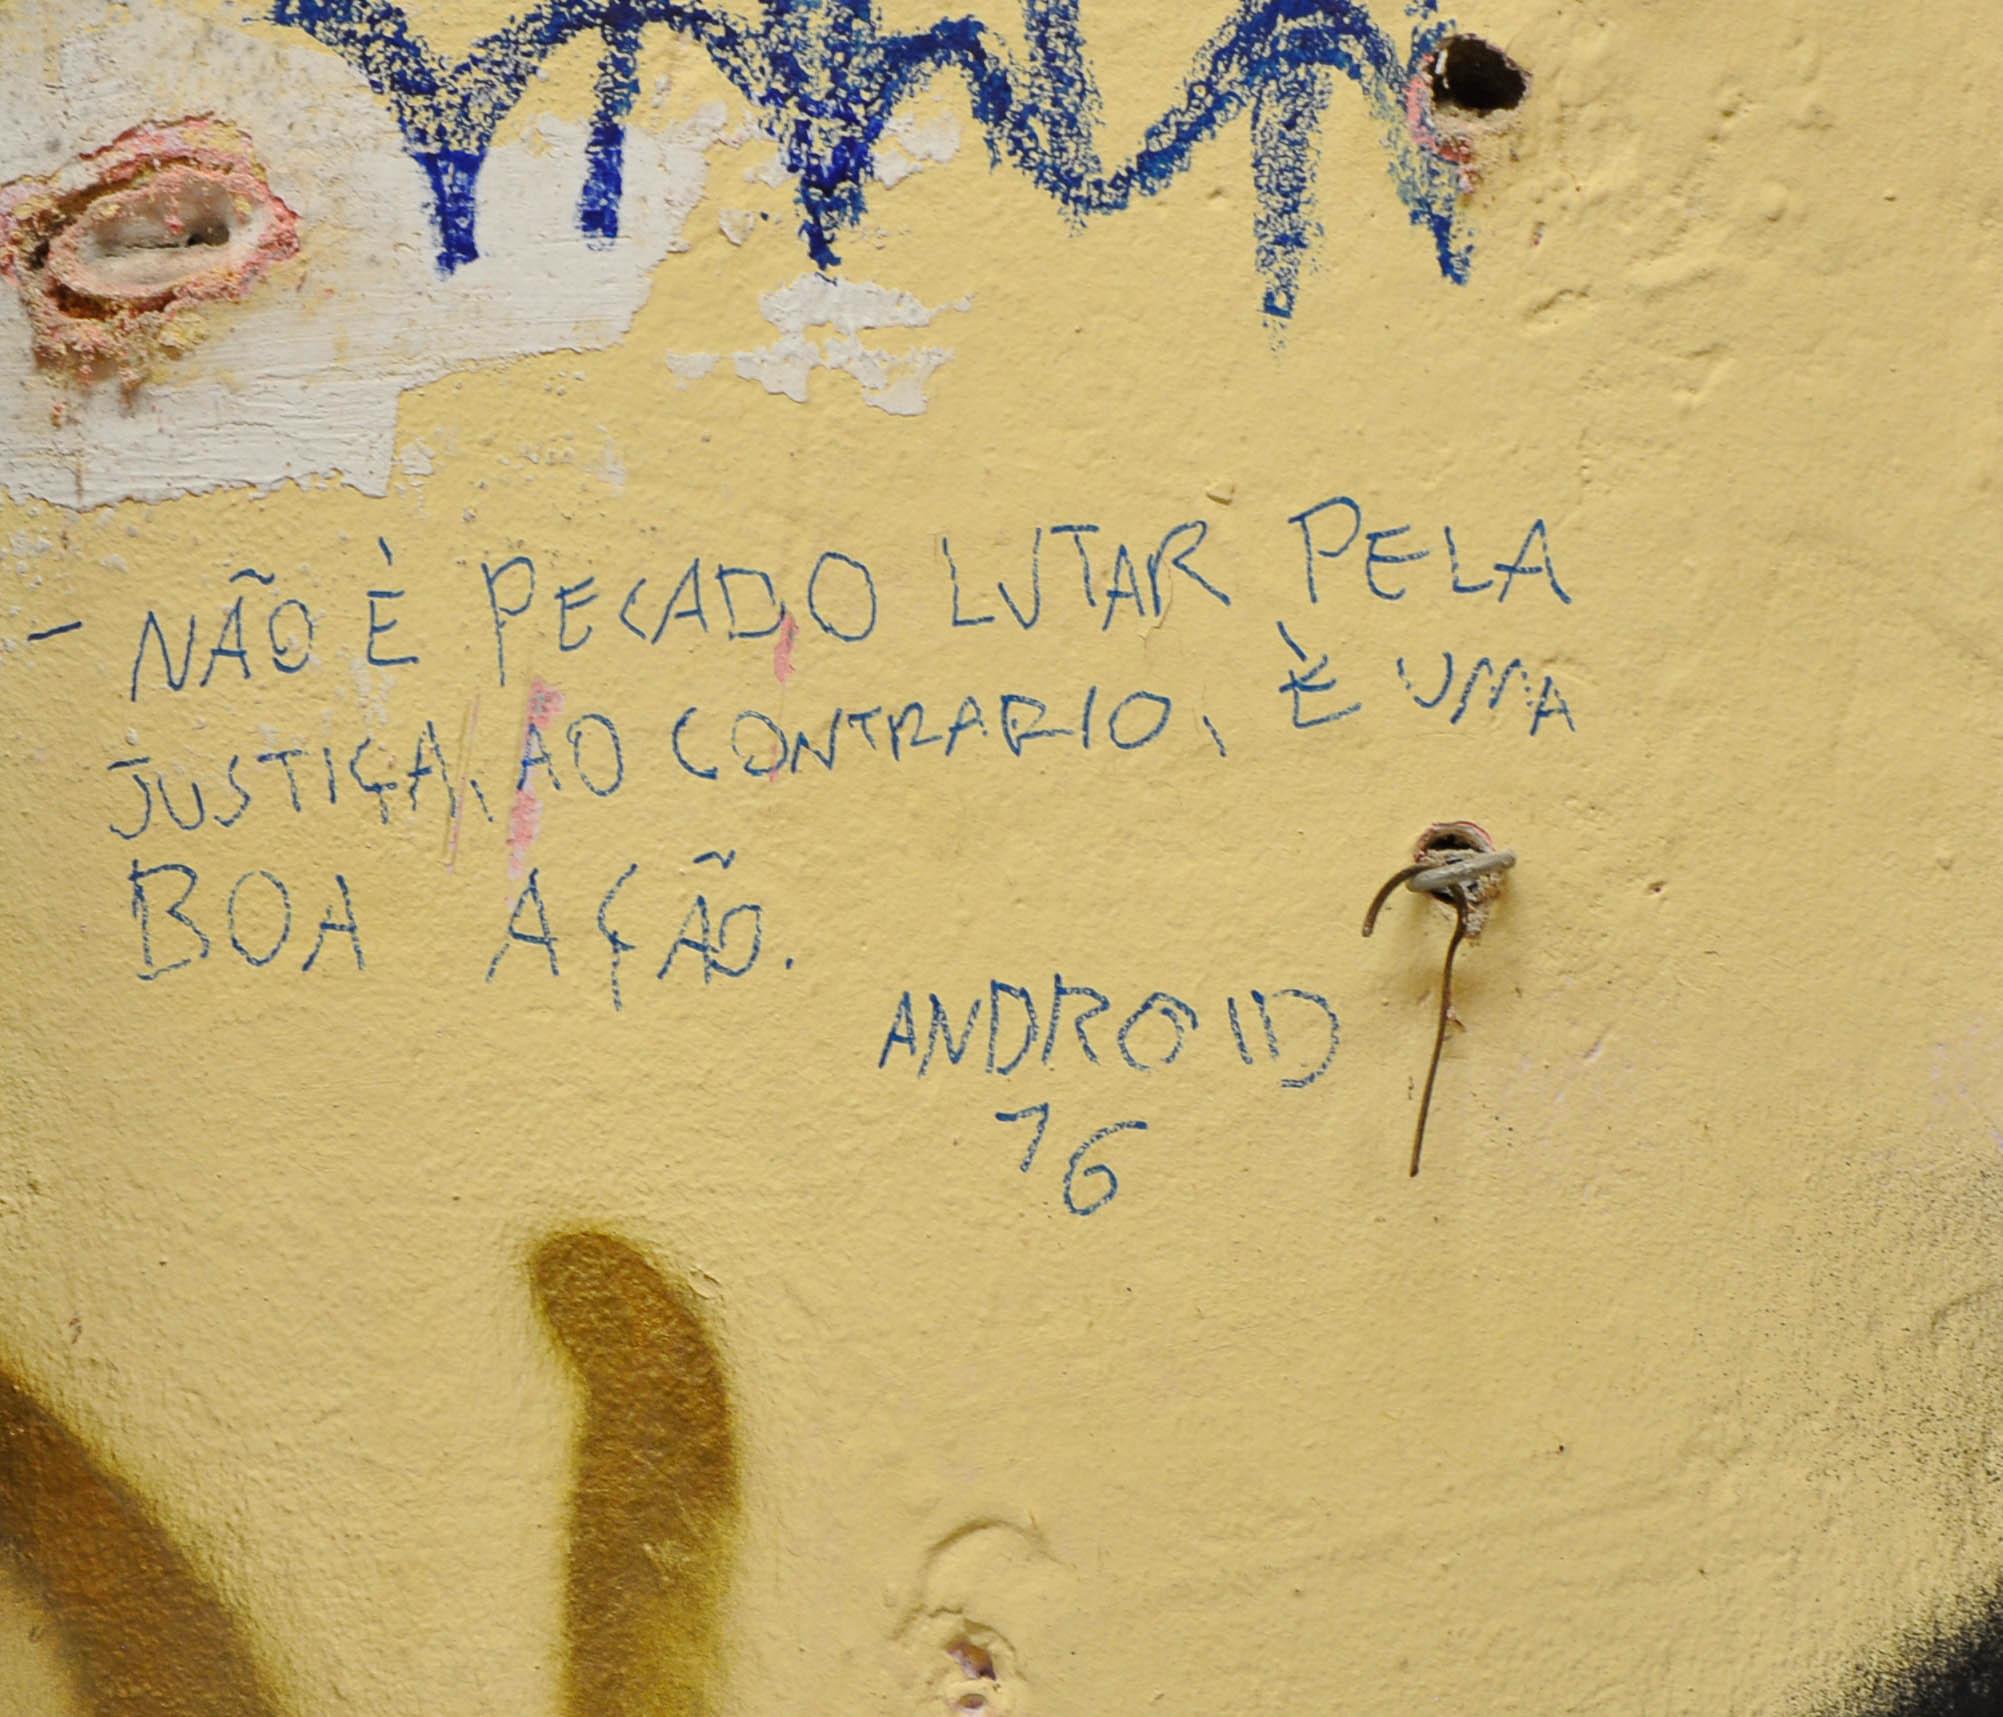 - NÃO È PECADO LUTAR PELA
JUSTIÇA, AO CONTRARIO, È UMA
BOA AÇÃO.
ANDROID
16